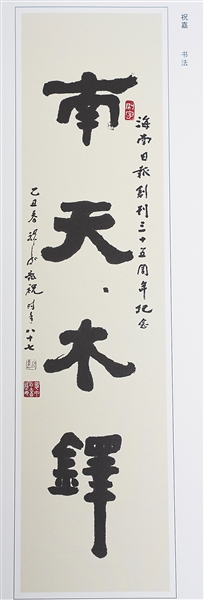 祝嘉 书法
海南日報創刊三十五周年紀念
南天木鐸
乙丑春祝嘉敬祝時年八十七